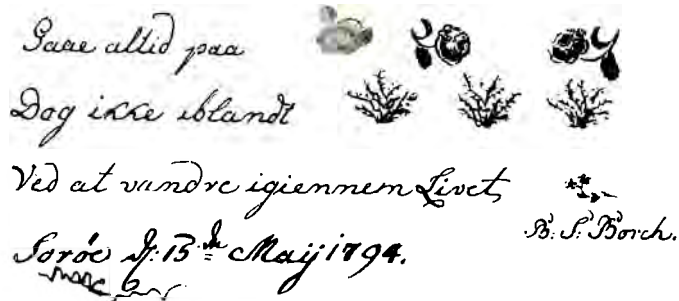 Gaae altid paa
Dog ikke iblandt
Ved at vandre igiennem Livet
B: S: Borch.
Soröe d: 13de Maij 1794.